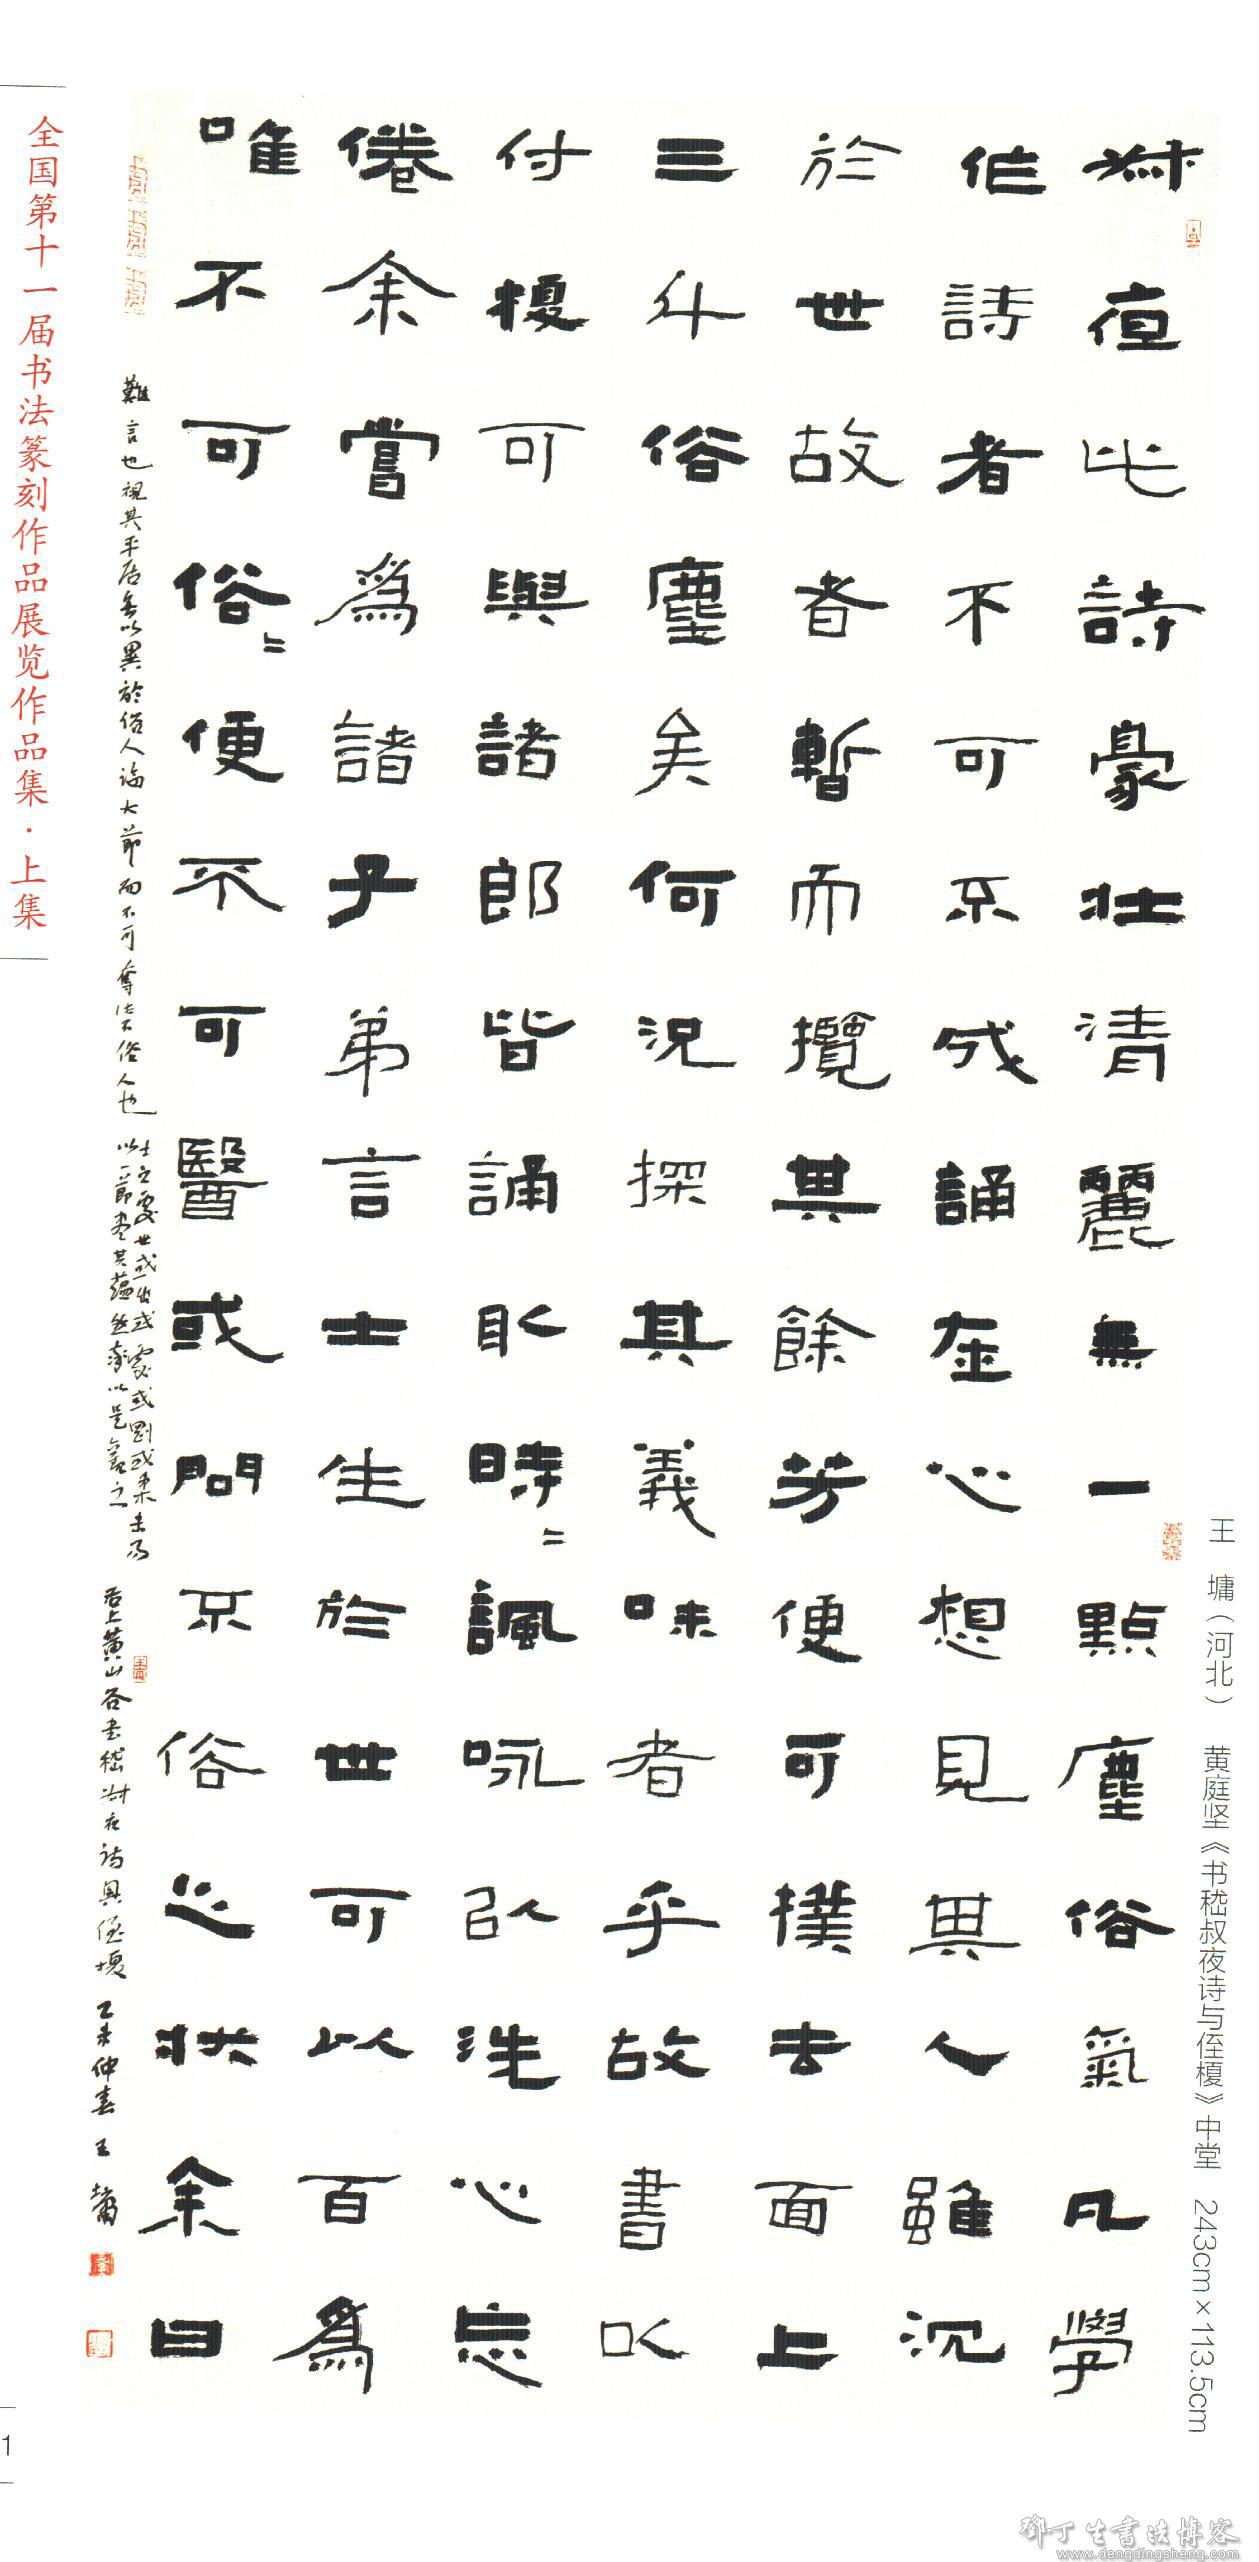 叔夜此詩豪壯清麗無一點塵俗氣凡學
作詩者不可不成誦在心想見其人雖沉
於世故者暫而攬其餘芳便可撲去面上
三斗俗塵矣何況探其義味者乎故書以
付榎可與諸郎皆誦取時〻諷咏以洗心忘
倦余嘗爲諸子弟言士生於世可以百爲
唯不可俗〻便不可醫或問不俗之狀余曰
難言也視其平居無以異於俗人臨大節而不可奪此不俗人也
士之處世或出或處或剛或柔未易
以一節盡其蘊然率以是觀之
右上黄山谷書嵇叔夜詩與侄榎 乙未仲春 王墉
王 墉（河北） 黄庭坚《书嵇叔夜诗与侄榎》中堂 243cm×113.5cm
全国第十一届书法篆刻作品展览作品集·上集
1
邓丁生書法博客
www.dengdingsheng.com